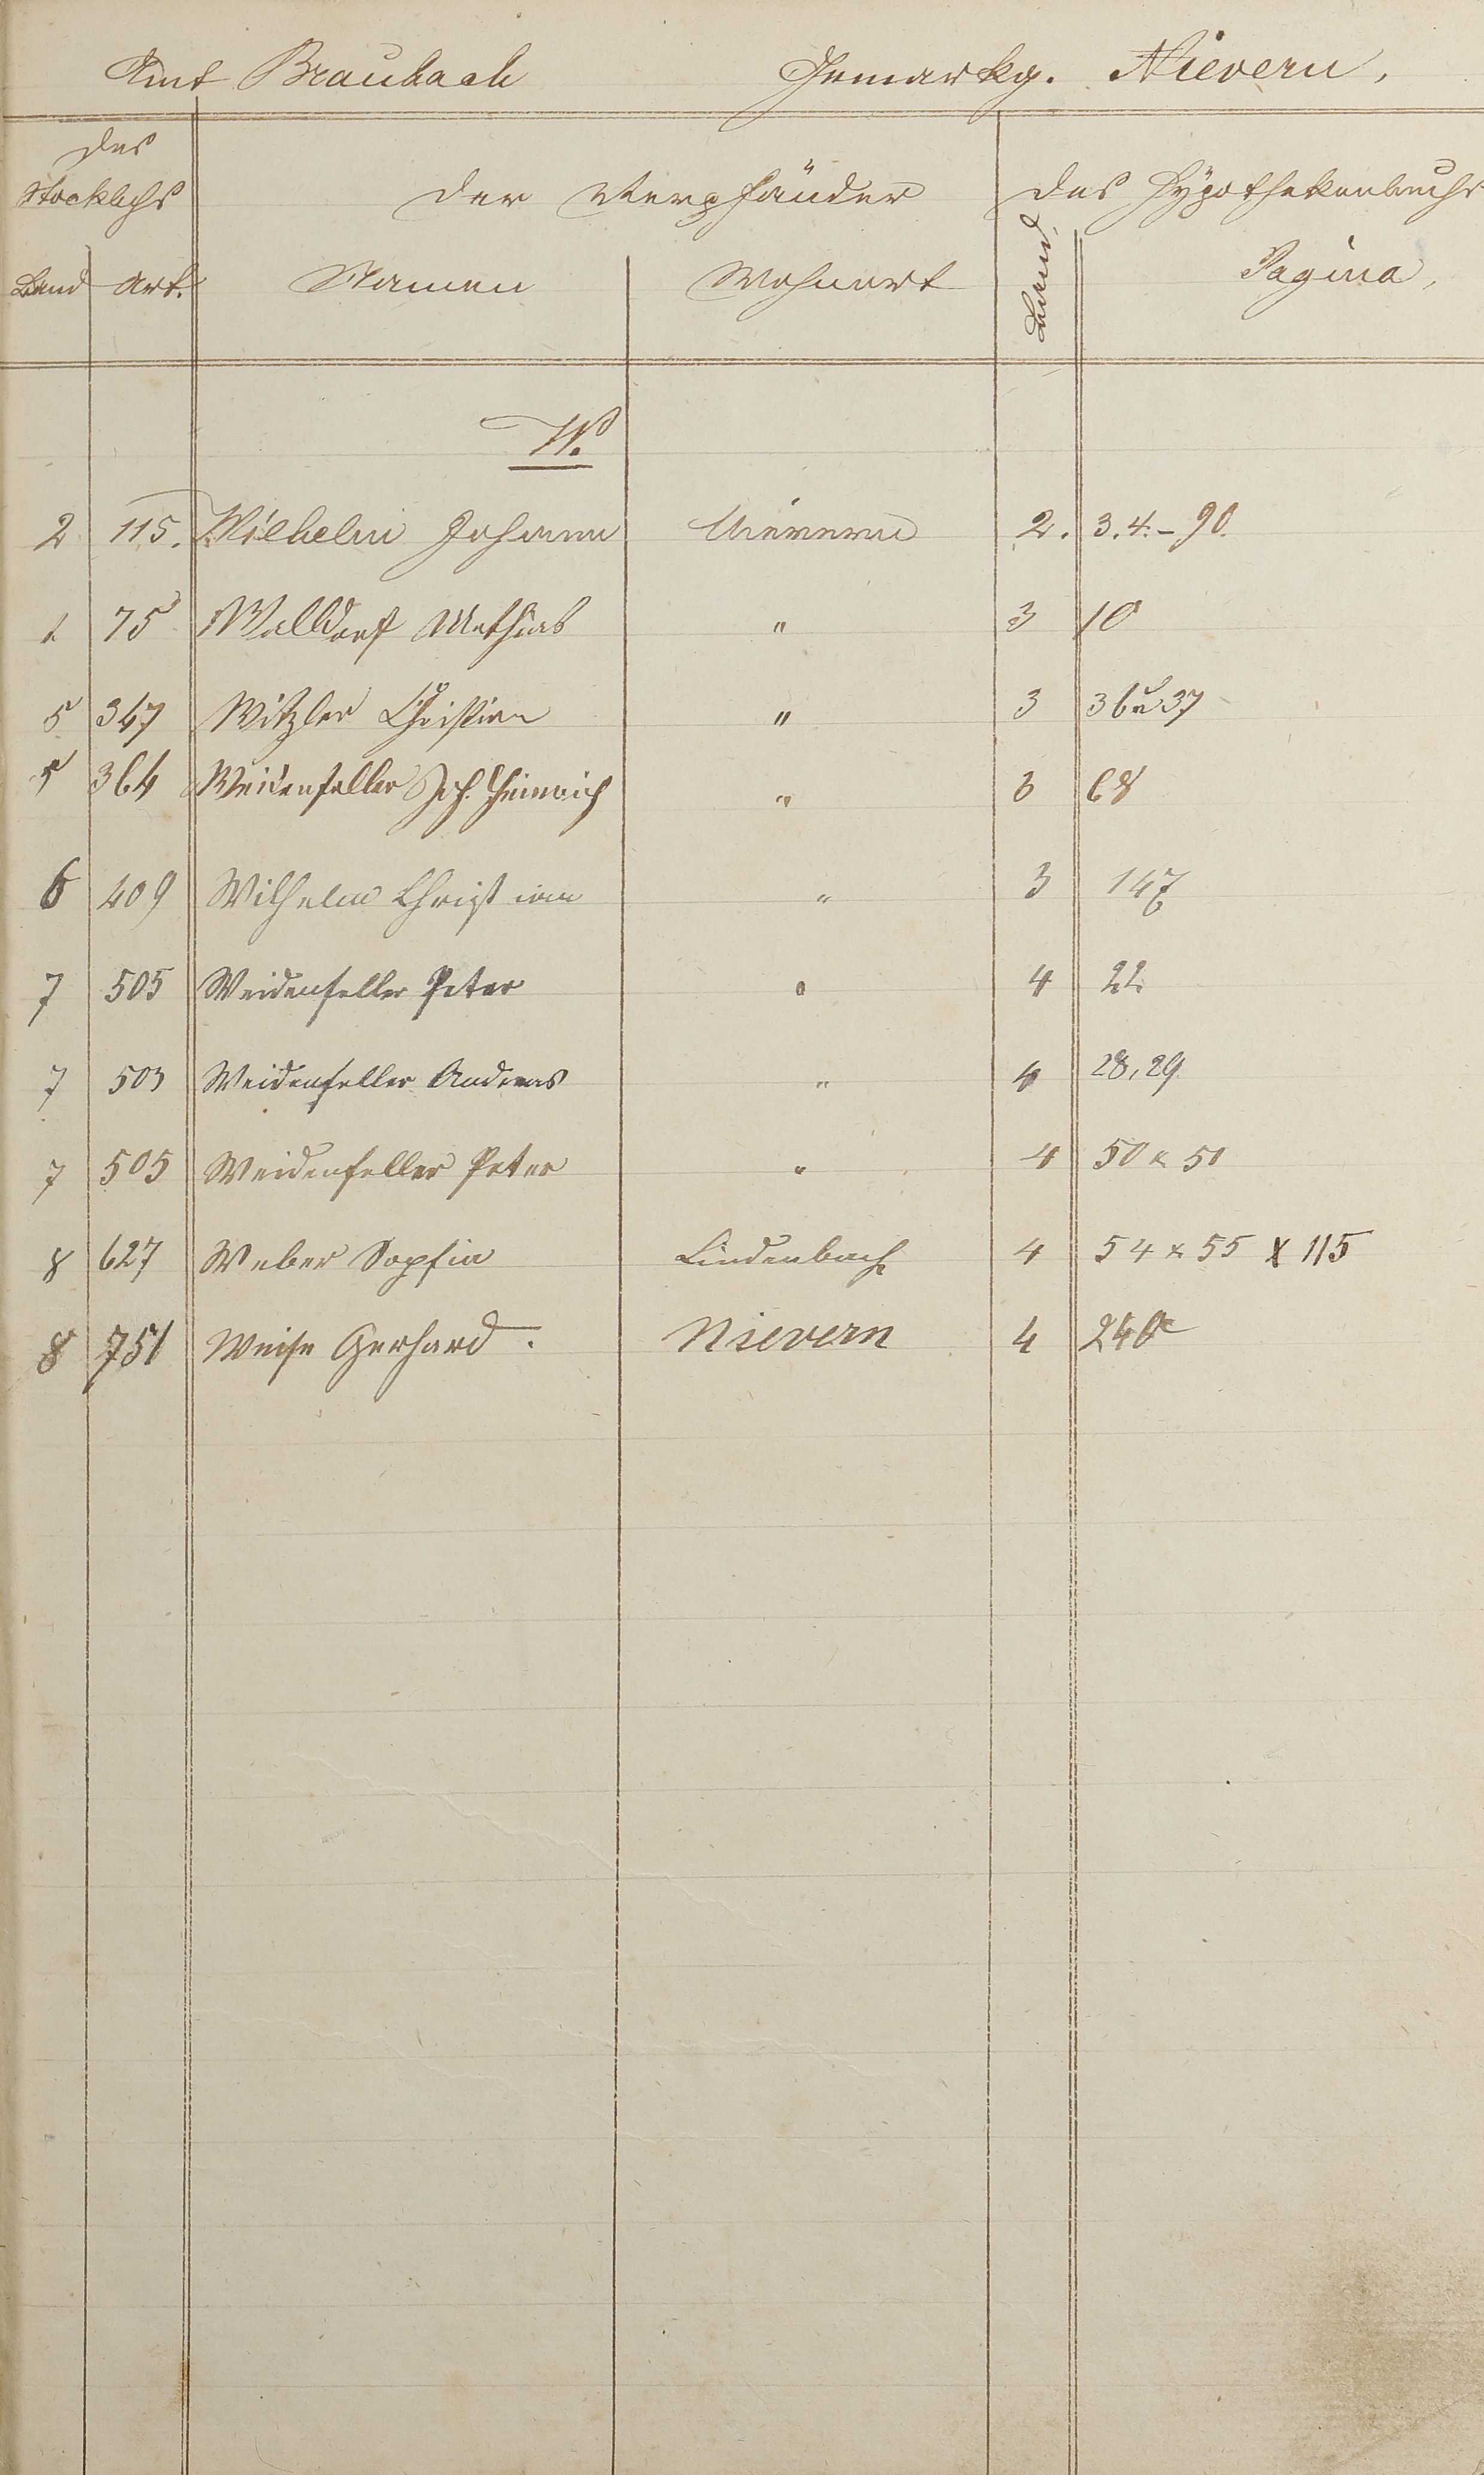 Amt Braubach Gemarkg. Nievern,
des
Stockbchs der Verpfänder des Hypothekenbuchs
Band Art. Namen Wohnort Band. Pagina,
W.
2 115. Wilhelm Johann Nievern 2. 3.4.-90.
1 75 Walldorf Mathias " 3 10
5 347 Witzler Christian " 3 36 u 37
5 364 Weidenfeller Joh. Heinrich " 3 68
6 409 Wilhelm Christian " 3 147
7 505 Weidenfeller Peter " 4 22
7 503 Weidenfeller Andreas " 4 28, 29
7 505 Weidenfeller Peter " 4 50 &
8 627 Weber Sophia Lindenbach 4 54 & 55 & 115
8 751 Weise Gerhard. Nievern 4